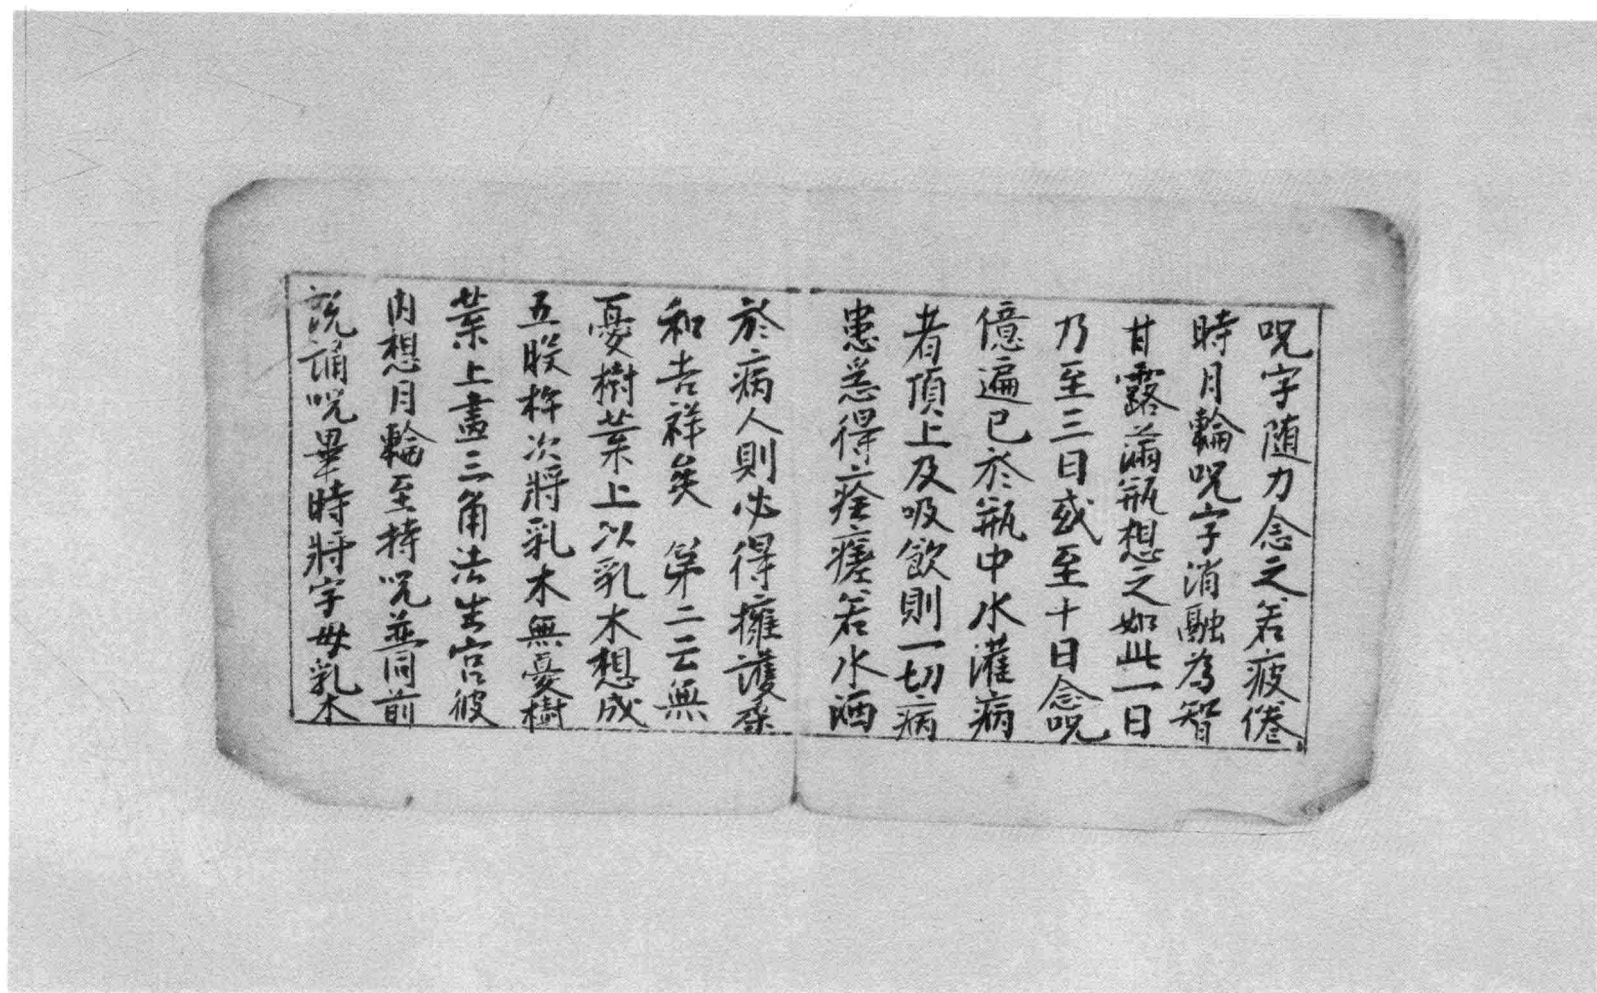 呪字随力念之若疲倦
時月輪呪字消融為智
甘露滿瓶想之如此一日
乃至三日或至十日念呪
億遍已於瓶中水灌病
者頂上及吸飲則一切病
患悉得痊瘥若水洒
於病人則必得擁護柔
和吉祥矣 第二云無
憂樹葉上以乳木想成
五股杵次將乳木無憂樹
葉上畫三角法生宮彼
內想月輪至持呪並同前
說誦呪畢時將字母乳木